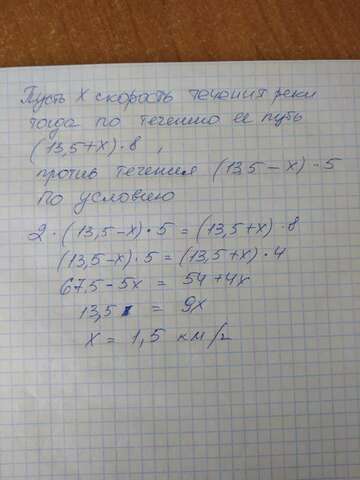 Пусть х скорость течения реки
тогда по течению ее путь
(13,5+х)·8 ,
против течения (13,5-х)·5
по условию
2·(13,5-х)·5 = (13,5+х)·8
(13,5-х)·5 = (13,5+х)·4
67,5-5х = 54+4х
13,5 = 9х
х = 1,5 км/г